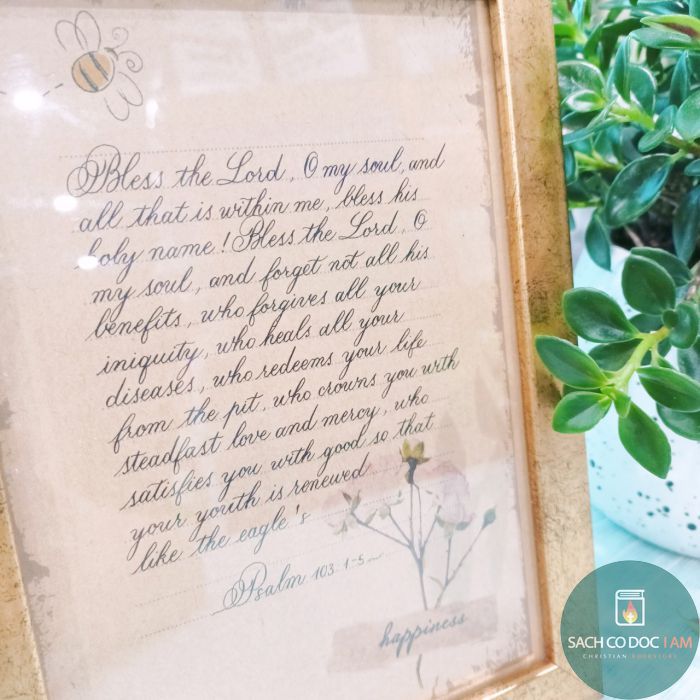 Bless the Lord, O my soul, and
all that is within me, bless his
holy name! Bless the Lord, O
my soul, and forget not all his
benefits, who forgives all your
iniquity, who heals all your
diseases, who redeems your life
from the pit, who crowns you with
steadfast love and mercy, who
satisfies you with good so that
your youth is renewed
like the eagle's
Psalm 103.1-5
happiness
SACH CO DOC I AM
CHRISTIAN BOOKSTORE